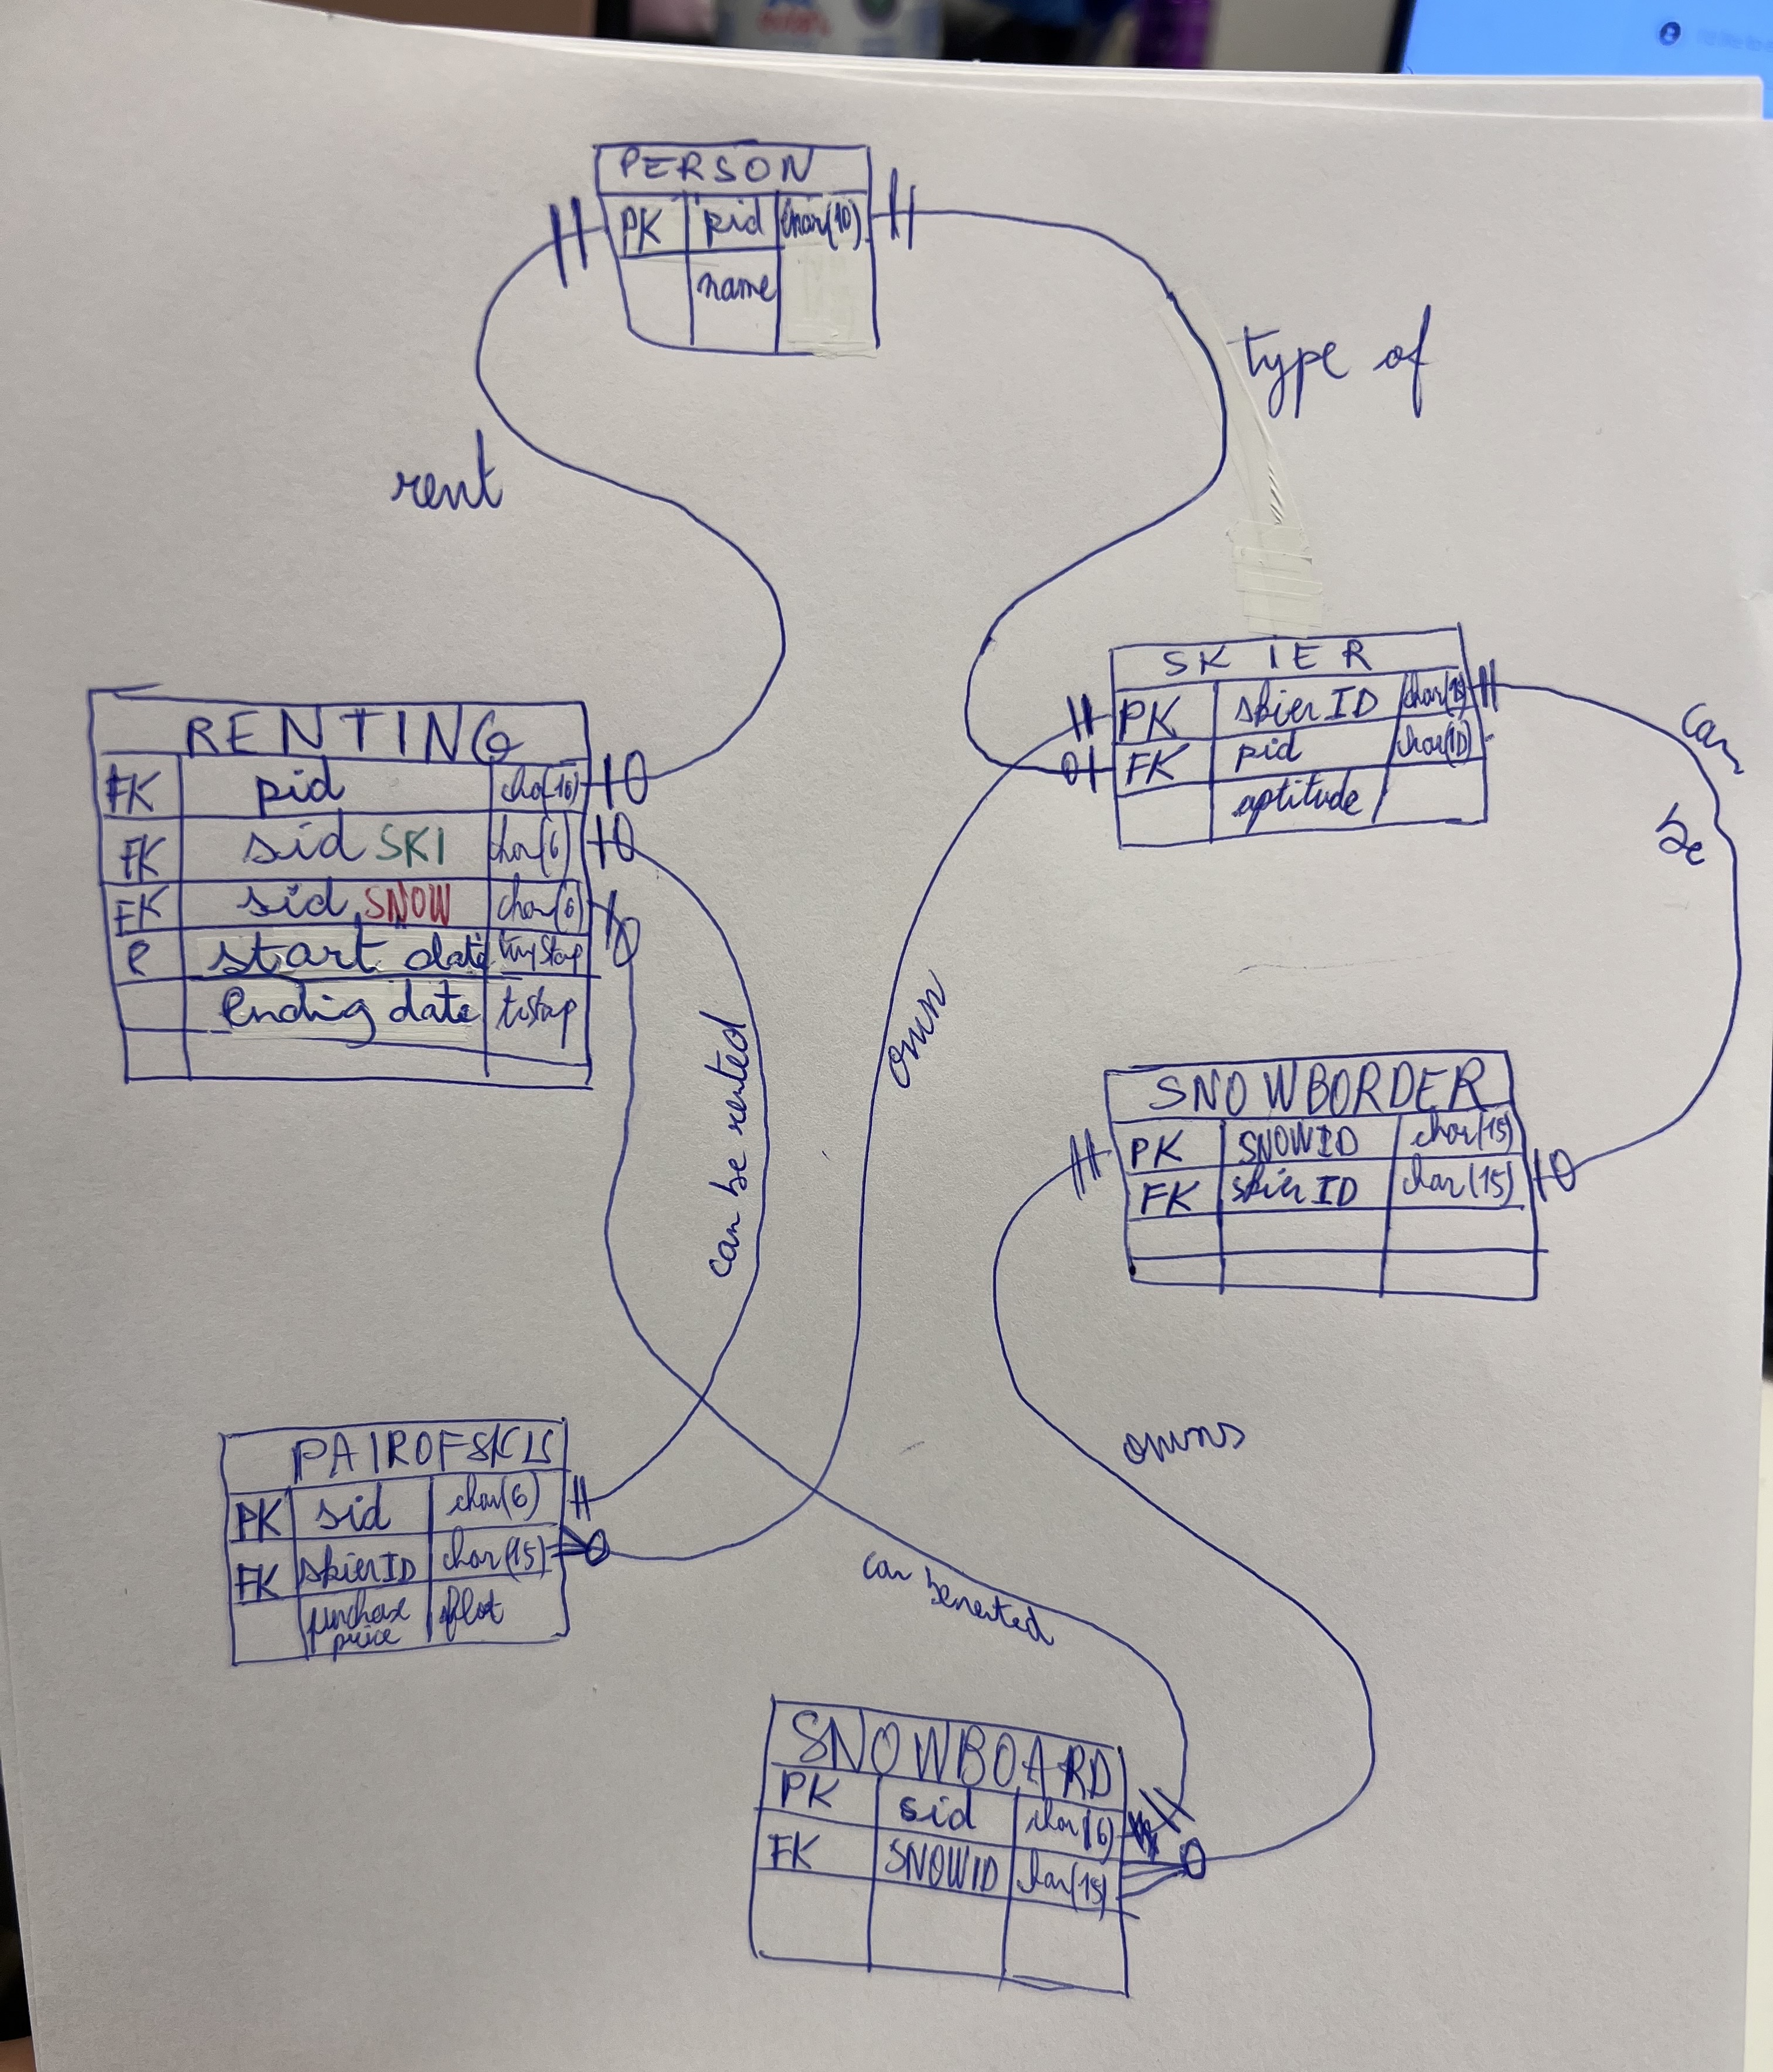 PERSON
PK pid char(10)
name
rent
type of
SKIER
PK skierID
FK pid char(10)
aptitude
can
be
RENTING
FK pid char(10)
FK sid SKI char(6)
FK sid SNOW char(6)
start date
Ending date
can be rented
own
SNOWBORDER
PK SNOWID char(15)
FK skierID char(15)
owns
PAIROFSKIS
PK sid char(6)
FK skierID char(15)
purchase
price
can be rented
SNOWBOARD
PK sid char(6)
FK SNOWID char(15)